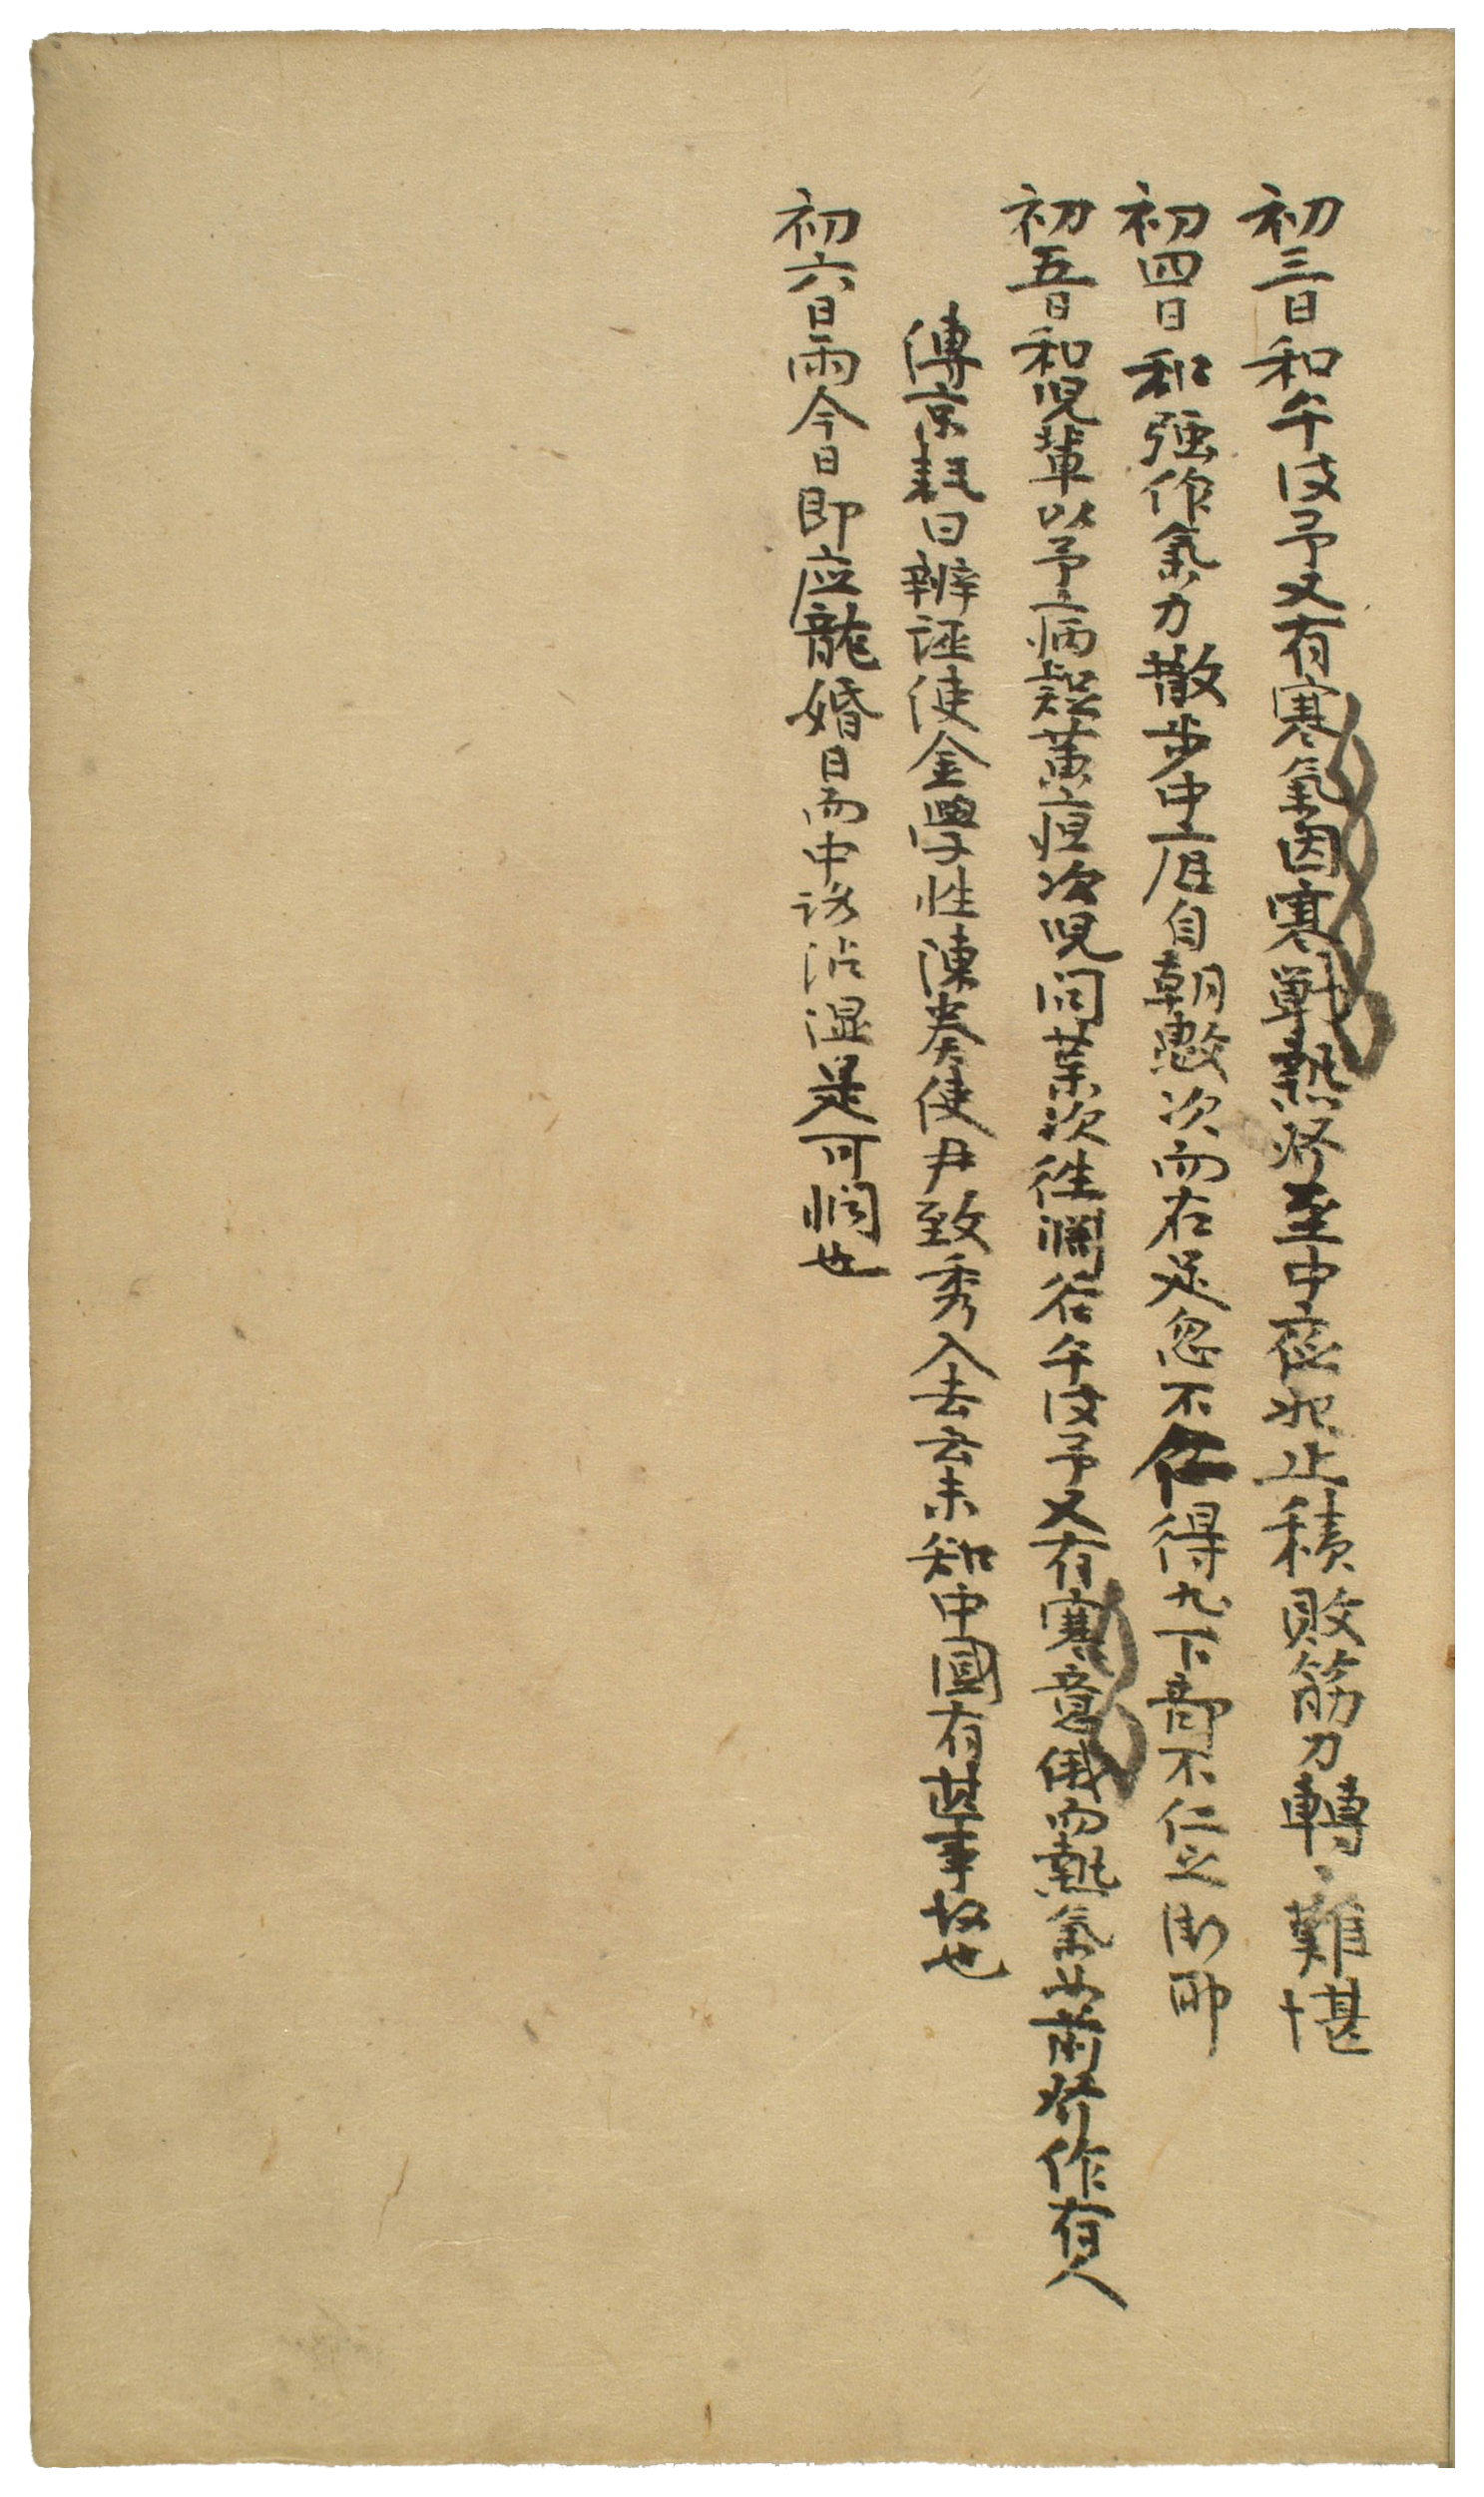 初三日和午後予又有寒氣因寒戰熱疼至中夜始止積敗筋力轉〻難堪
初四日和強作氣力散步中庭自朝數次而右足忽不任得九下部不仁之漸耶
初五日和児輩以予病疑黃疸次児問葉次徃澗谷午後予又有寒意俄而熱氣如前疼作有人
傳京報曰辨誣使金學性陳奏使尹致秀入去云未知中國有甚事故也
初六日雨今日即应龍婚日雨中諒沾濕是可憫也